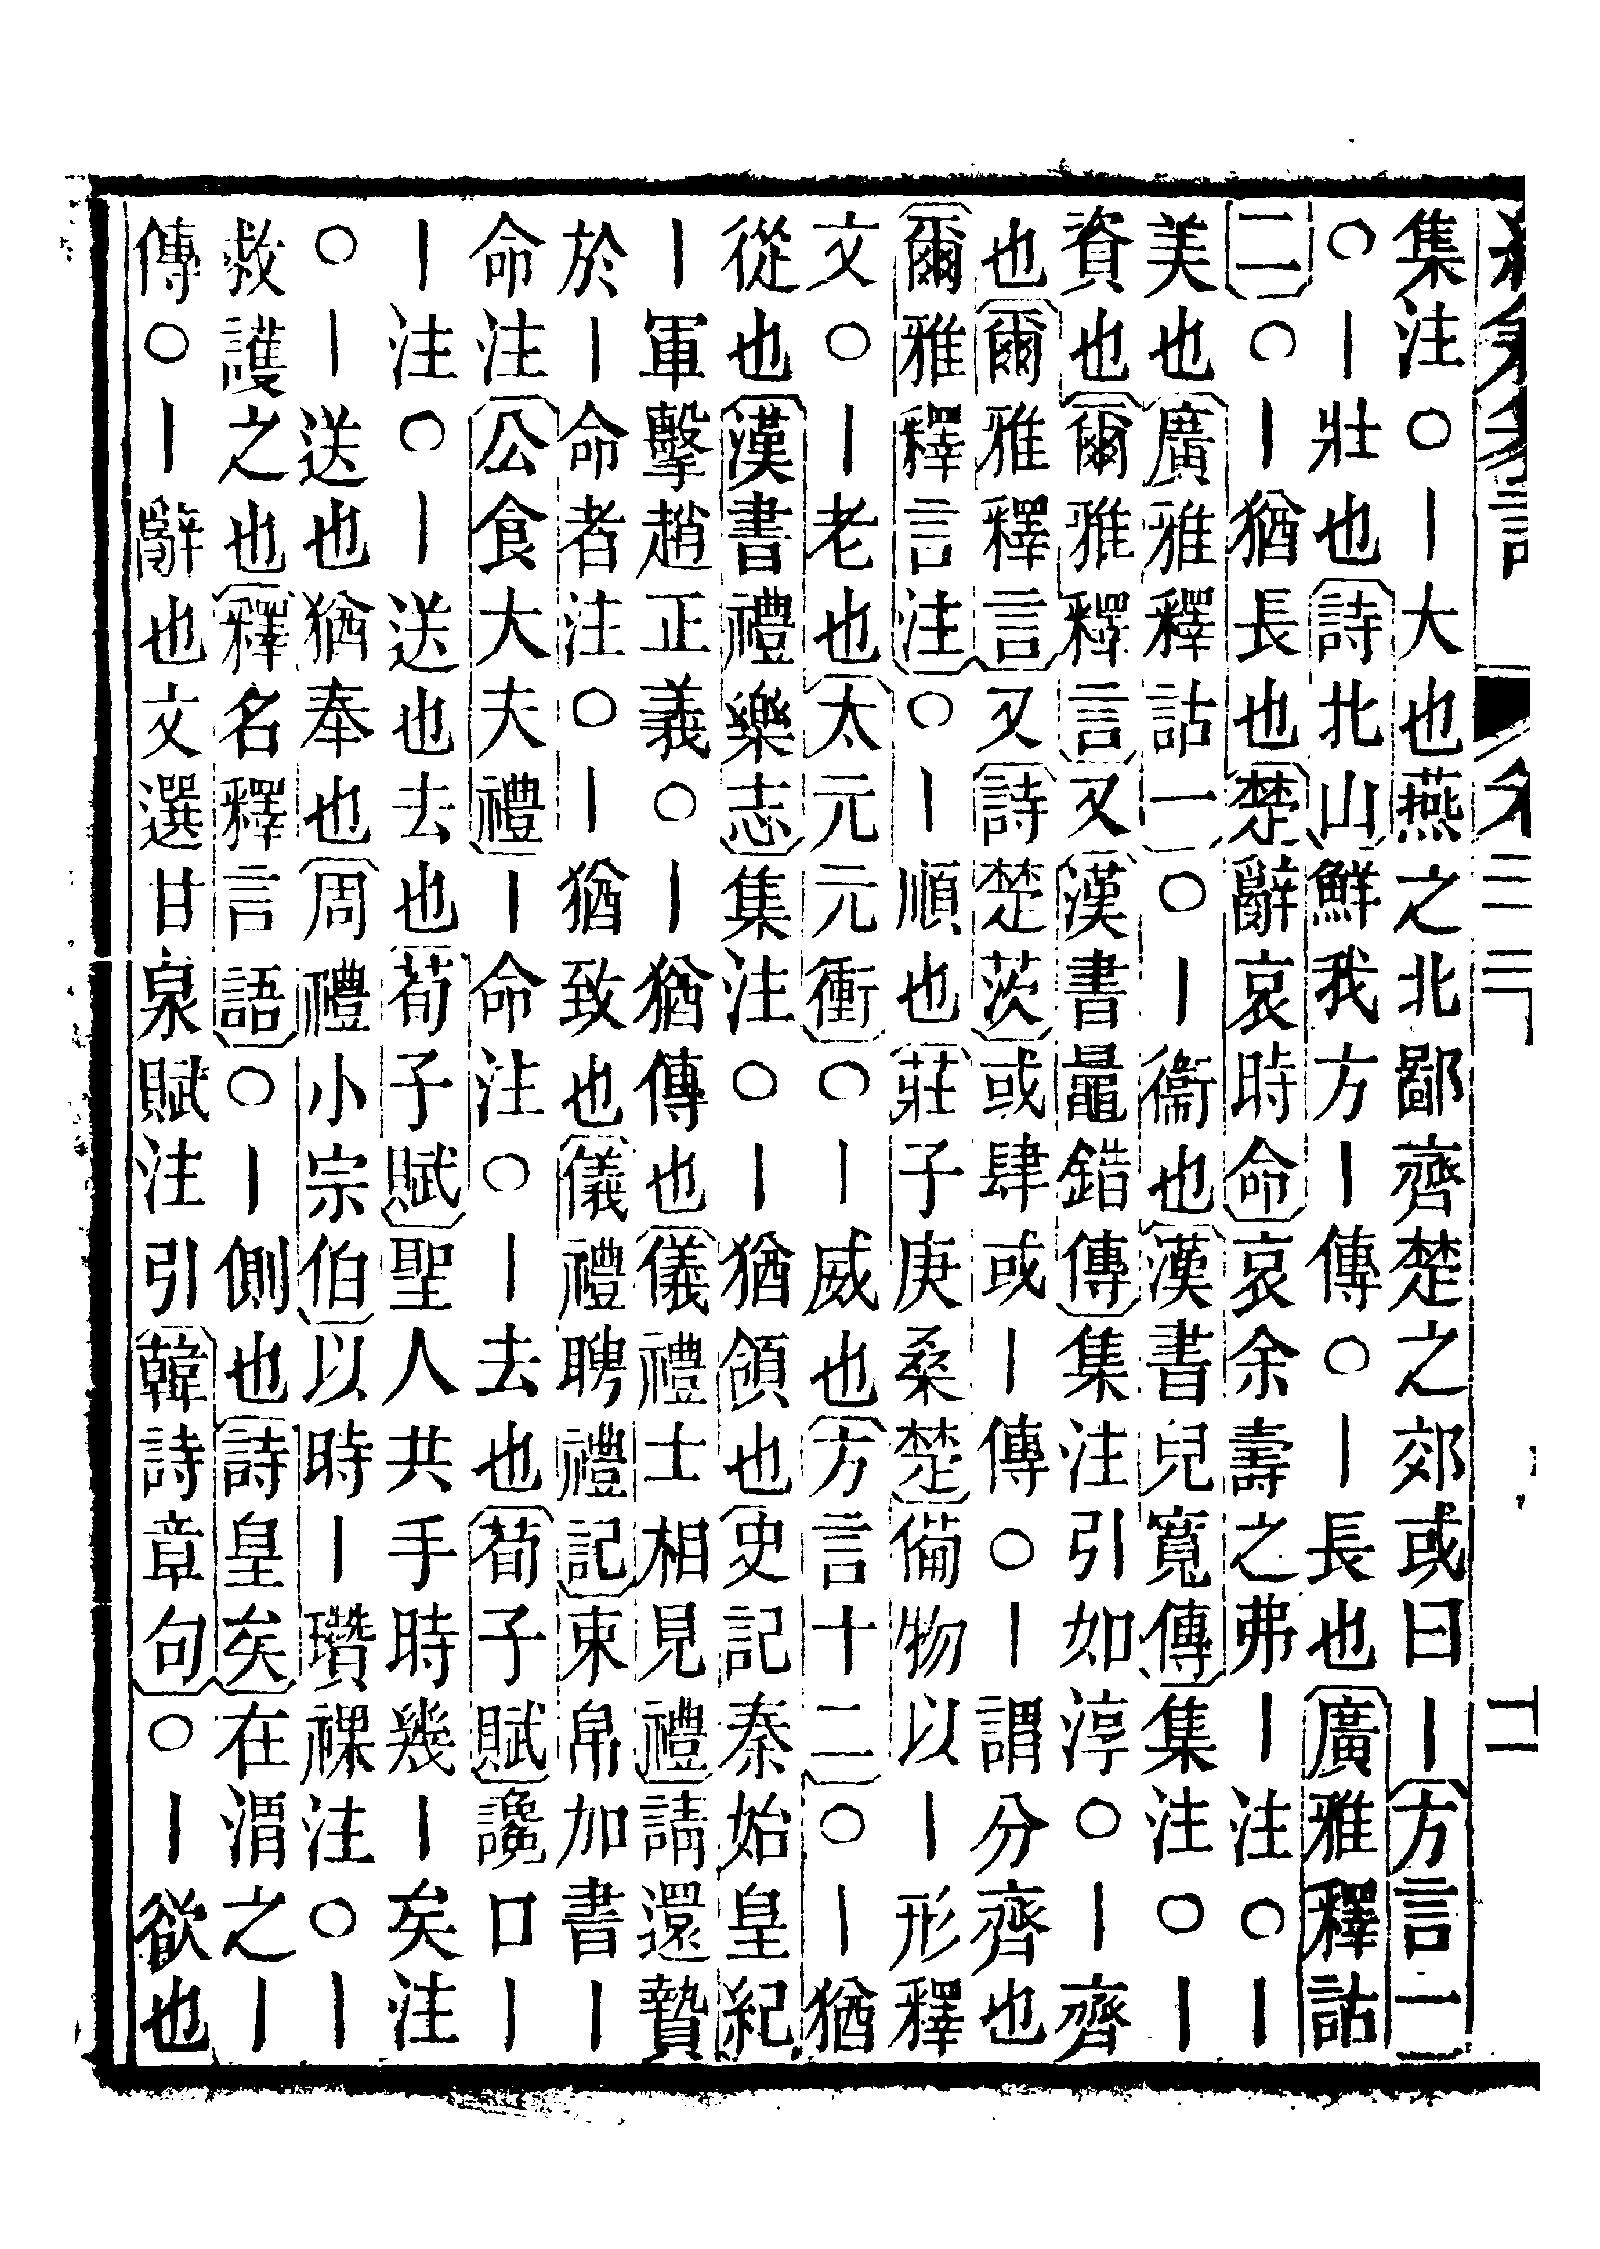 集注○｜大也燕之北鄙齊楚之郊或曰｜方言一
○｜壯也詩北山鮮我方｜傳○｜長也廣雅釋詁
二○｜猶長也楚辭哀時命哀余壽之弗｜注○｜
美也廣雅釋詁一○｜衞也漢書兒寬傳集注○｜
資也爾雅釋言又漢書鼂錯傳集注引如淳○｜齊
也爾雅釋言又詩楚茨或肆或｜傳○｜謂分齊也
爾雅釋言注○｜順也莊子庚桑楚備物以｜形釋
文○｜老也太元元衝○｜威也方言十二○｜猶
從也漢書禮樂志集注○｜猶領也史記秦始皇紀
｜軍擊趙正義○｜猶傳也儀禮士相見禮請還贄
於｜命者注○｜猶致也儀禮聘禮記束帛加書｜
命注公食大夫禮｜命注○｜去也荀子賦讒口｜
｜注○｜送也去也荀子賦聖人共手時幾｜矣注
○｜送也猶奉也周禮小宗伯以時｜瓚祼注○｜
救護之也釋名釋言語○｜側也詩皇矣在渭之｜
傳○｜辭也文選甘泉賦注引韓詩章句○｜欲也